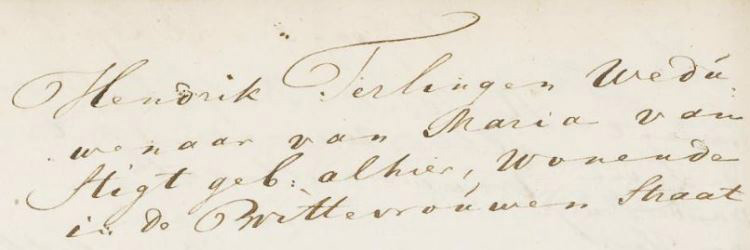 Hendrik Terlingen Wedu
wenaar van Maria van
Stigt geb: alhier, Wonende
in de Wittevrouwen Straat